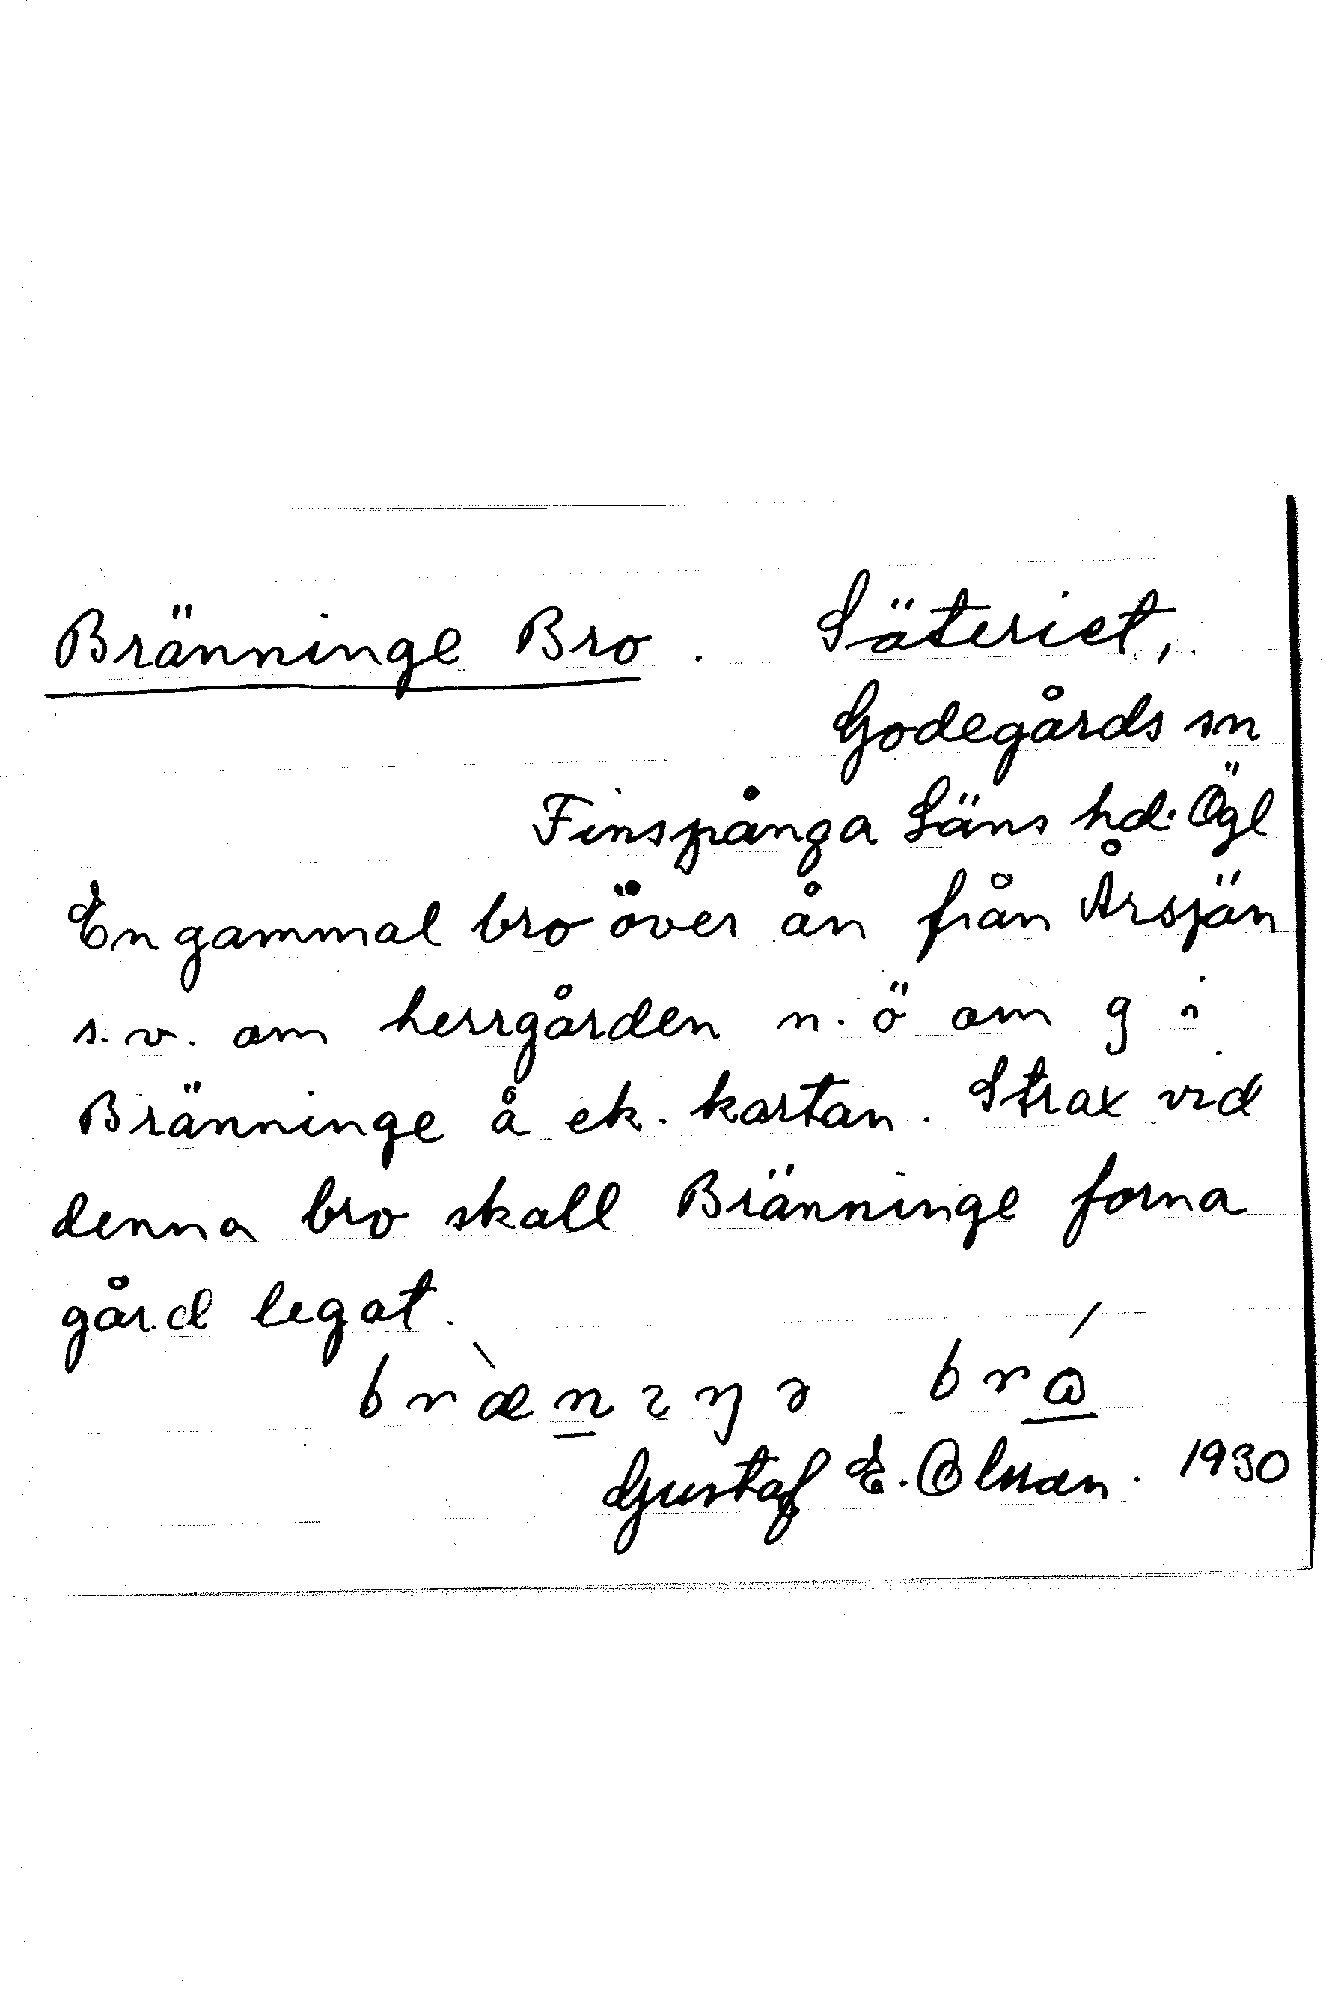 Bränninge Bro. Säteriet,
Godegårds sn
Finspånga Läns hd. Ögl
En gammal bro över ån från Årsjön
s.v. om herrgården n.ö om g i
Bränninge å ek. kartan. Strax vid
denna bro skall Bränninge forna
gård legat.
brænıŋə
Gustaf E. 1930